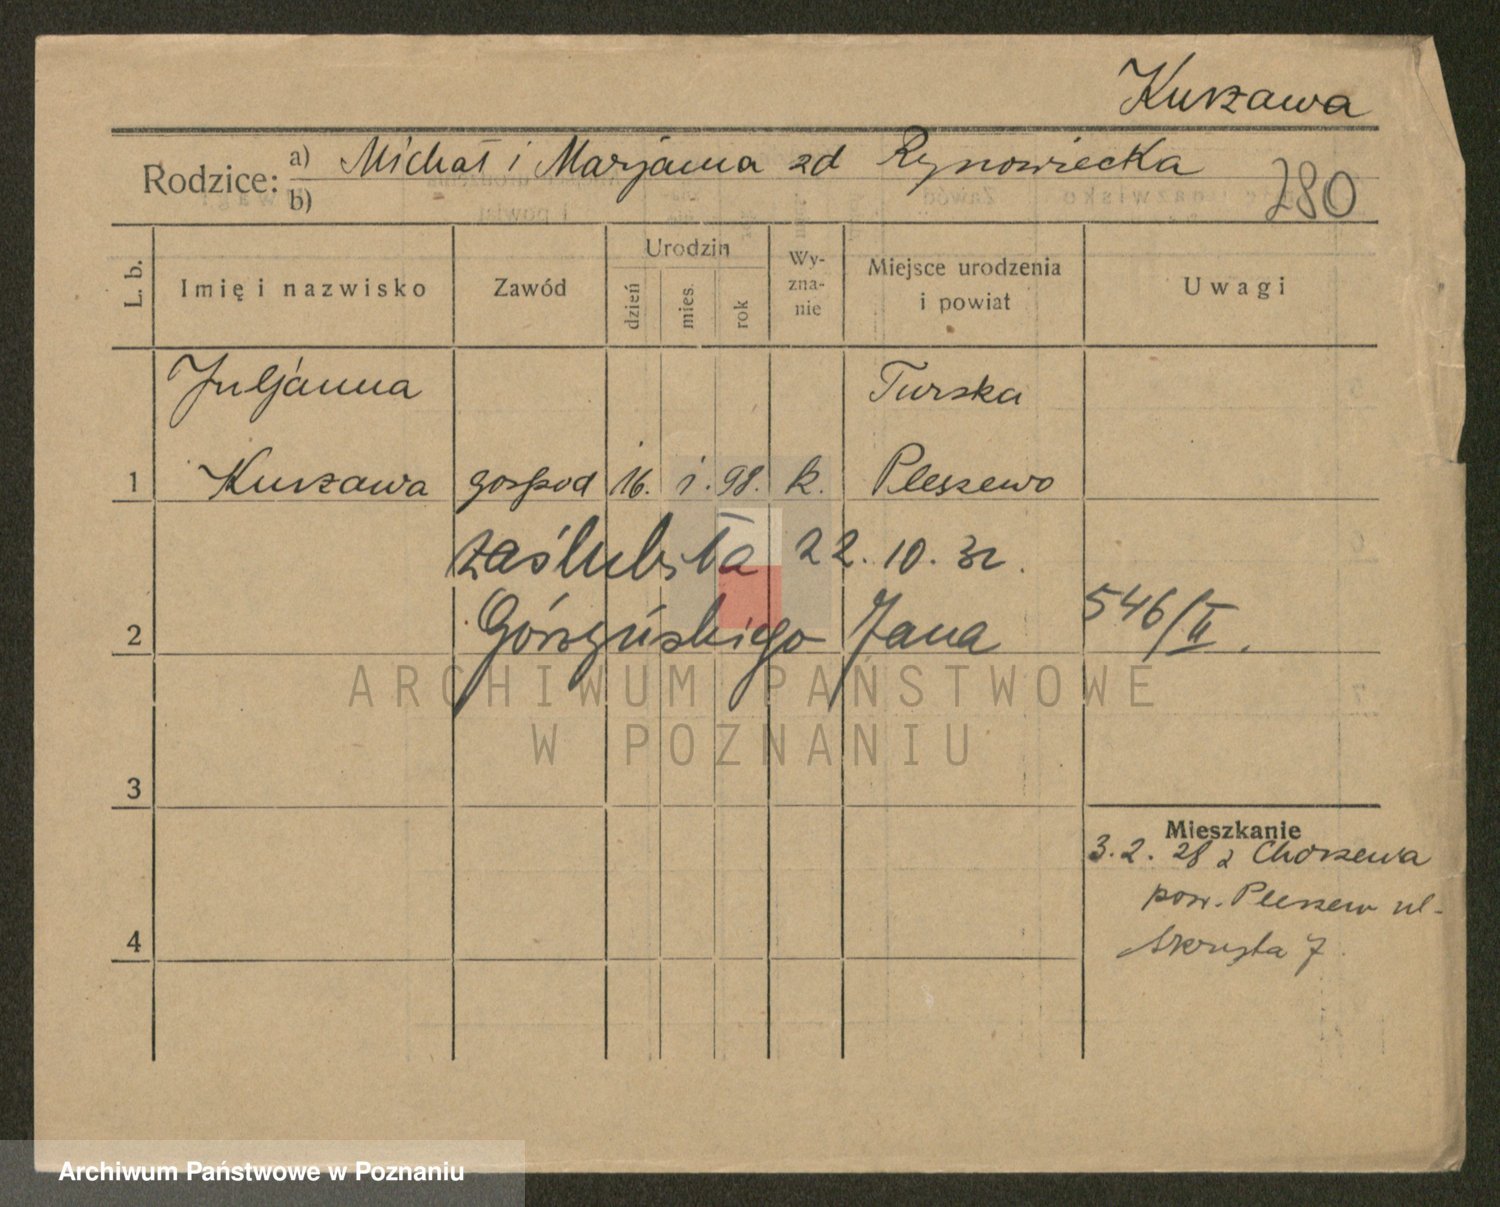 Kurzawa
Rodzice: a) Michał i Marjanna zd Rynowiecka
b)
280
L. b.
Imię i nazwisko
Zawód
Urodzin
dzień
mies.
rok
Wy-
zna-
nie
Miejsce urodzenia
i powiat
Uwagi
Juljanna
Turska
1 Kurzawa gospod 16. i. 98. k. Pleszewo
zaślubiła 22. 10. 32.
2 Górzyńskiego Jana 546/II.
ARCHIWUM PAŃSTWOWE
W POZNANIU
3
Mieszkanie
3. 2. 28 z Chorzewa
pow. Pleszew ul.
4
Skryta 7.
Archiwum Państwowe w Poznaniu